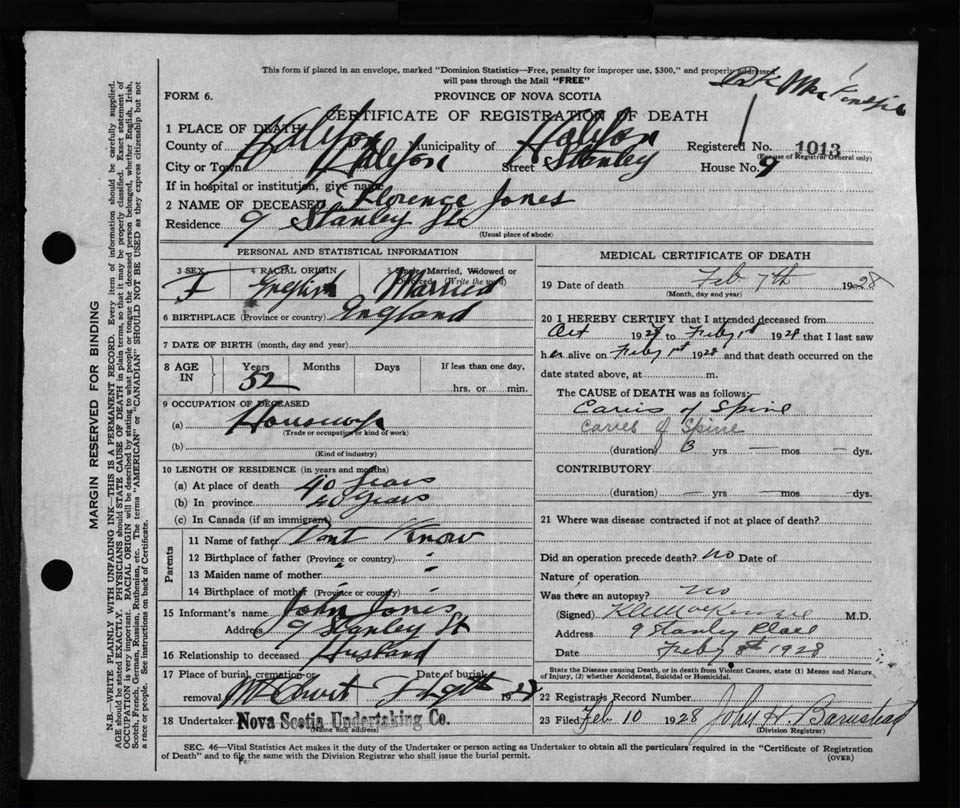 This form if placed in an envelope, marked "Dominion Statistics—Free, penalty for improper use, $300," and properly addressed
will pass through the Mail "FREE"
FORM 6.
PROVINCE OF NOVA SCOTIA
CERTIFICATE OF REGISTRATION OF DEATH
1 PLACE OF DEATH
County of Halifax Municipality of Halifax Registered No. 1013
(For use of Registrar General only)
City or Town Halifax Street Stanley House No. 9
If in hospital or institution, give name
2 NAME OF DECEASED Florence Jones
Residence 9 Stanley
(Usual place of abode)
PERSONAL AND STATISTICAL INFORMATION
3 SEX F
4 RACIAL ORIGIN English
5 Single, Married, Widowed or Divorced (Write the word) Married
6 BIRTHPLACE (Province or country) England
7 DATE OF BIRTH (month, day and year)
8 AGE IN Years 52 Months Days If less than one day, hrs. or min.
9 OCCUPATION OF DECEASED
(a) Housewife
(Trade or occupation or kind of work)
(b)
(Kind of industry)
10 LENGTH OF RESIDENCE (in years and months)
(a) At place of death 40 Years
(b) In province 40 Years
(c) In Canada (if an immigrant)
Parents
11 Name of father Dont Know
12 Birthplace of father (Province or country) "
13 Maiden name of mother " "
14 Birthplace of mother (Province or country) " "
15 Informant's name John Jones
Address 9 Stanley St
16 Relationship to deceased Husband
17 Place of burial, cremation or
removal 1928
18 Undertaker Nova Scotia Undertaking Co.
(Name and address)
MEDICAL CERTIFICATE OF DEATH
19 Date of death Feb 7th 1928
(Month, day and year)
20 I HEREBY CERTIFY that I attended deceased from
Oct 192 to Feby 1st 1928 that I last saw
her alive on Feby 1st 1928 and that death occurred on the
date stated above, at m.
The CAUSE of DEATH was as follows:
Caries of Spine
Caries of Spine
(duration) 3 yrs — mos — dys.
CONTRIBUTORY
(duration) — yrs — mos — dys.
21 Where was disease contracted if not at place of death?
Did an operation precede death? no Date of
Nature of operation
Was there an autopsy? no
(Signed) MacKenzie M.D.
Address 9 Stanley Place
Date Feby 8th 1928
State the Disease causing Death, or in death from Violent Causes, state (1) Means and Nature of Injury, (2) whether Accidental, Suicidal or Homicidal.
22 Registrar's Record Number
23 Filed Feb 10 1928 John H. Barnstead
(Division Registrar)
SEC. 46—Vital Statistics Act makes it the duty of the Undertaker or person acting as Undertaker to obtain all the particulars required in the "Certificate of Registration
of Death" and to file the same with the Division Registrar who shall issue the burial permit. (OVER)
MARGIN RESERVED FOR BINDING
N.B.—WRITE PLAINLY WITH UNFADING INK—THIS IS A PERMANENT RECORD. Every item of information should be carefully supplied.
AGE should be stated EXACTLY. PHYSICIANS should STATE CAUSE OF DEATH in plain terms, so that it may be properly classified. Exact statement of
OCCUPATION is very important. RACIAL ORIGIN will be described by stating to what people or tongue the deceased person belonged, whether English, Irish,
Scotch, French, German, Russian, Ruthenian, etc. The terms "AMERICAN" or "CANADIAN" SHOULD NOT BE USED as they express citizenship but not
a race or people. See instructions on back of Certificate.